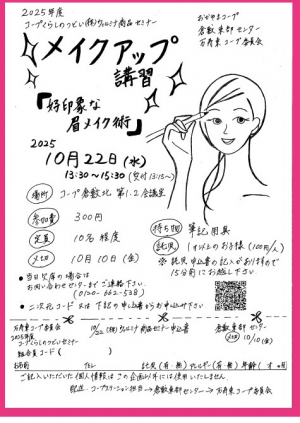 2025年度
コープくらしのつどい(株)ヴェルジェ商品セミナー
おかやまコープ
倉敷東部センター
万寿東コープ委員会
メイクアップ
講習
「好印象な
眉メイク術」
2025
10月22日(水)
13:30〜15:30 (受付13:15〜)
場所 コープ倉敷北 第1.2会議室
参加費 300円
定員 10名程度
〆切 10月10日(金)
持ち物 筆記用具
託児 1才以上のお子様(100円/人)
※託児申込書の記入がありますので
15分前にお越し下さい
●当日欠席の場合は
お問い合わせセンターまでご連絡ください
(0120-662-538)
●二次元コード又は下記の申込書からお申込み下さい
万寿東コープ委員会
2025年度
コープくらしのつどいセミナー
10/22 商品セミナー申込書
倉敷東部センター
〆切 10/10(金)
組合員コード( )
お名前 TEL 託児(有・無) アレルギー(有・無) 年齢( 才 ヶ月)
ご記入いただいた個人情報はこの企画以外には使用いたしません。
倉敷東部センター→万寿東コープ委員会